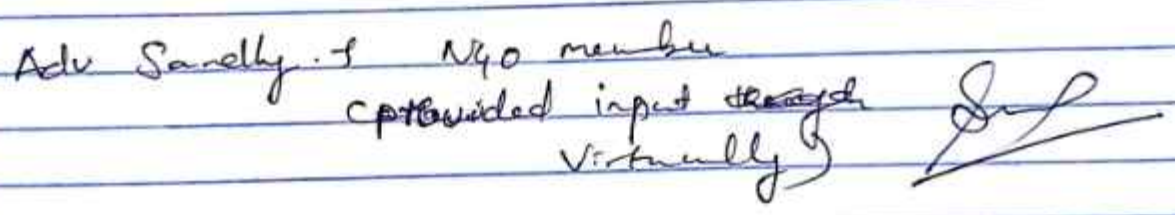 Adv Sandhy. S NGO member
(provided input through
virtually)